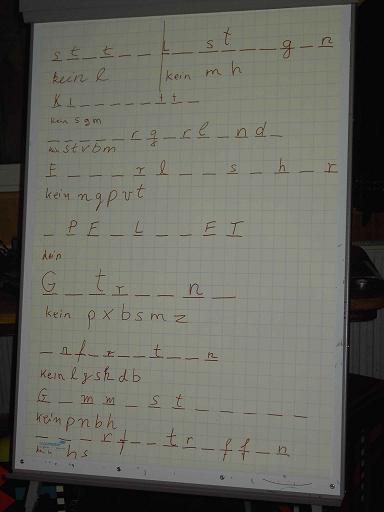 s t _ t _ _ L _ s t _ _ _ g _ n
kein l kein m h
K i _ _ _ _ _ t t _
kein s g m
_ _ _ _ _ r g _ r l _ n d _
kein s t v b m
F _ _ _ r l _ _ s _ h _ r
kein n q p v t
_ P E _ L _ _ E I
kein
G _ t r _ _ n _
kein p x b s m z
_ n f _ r _ t _ _ n
kein l g s k d b
G _ m m _ s t _ _ _ _ _ _
kein p n b h
_ _ _ r f _ _ t r _ f f _ n
kein h s